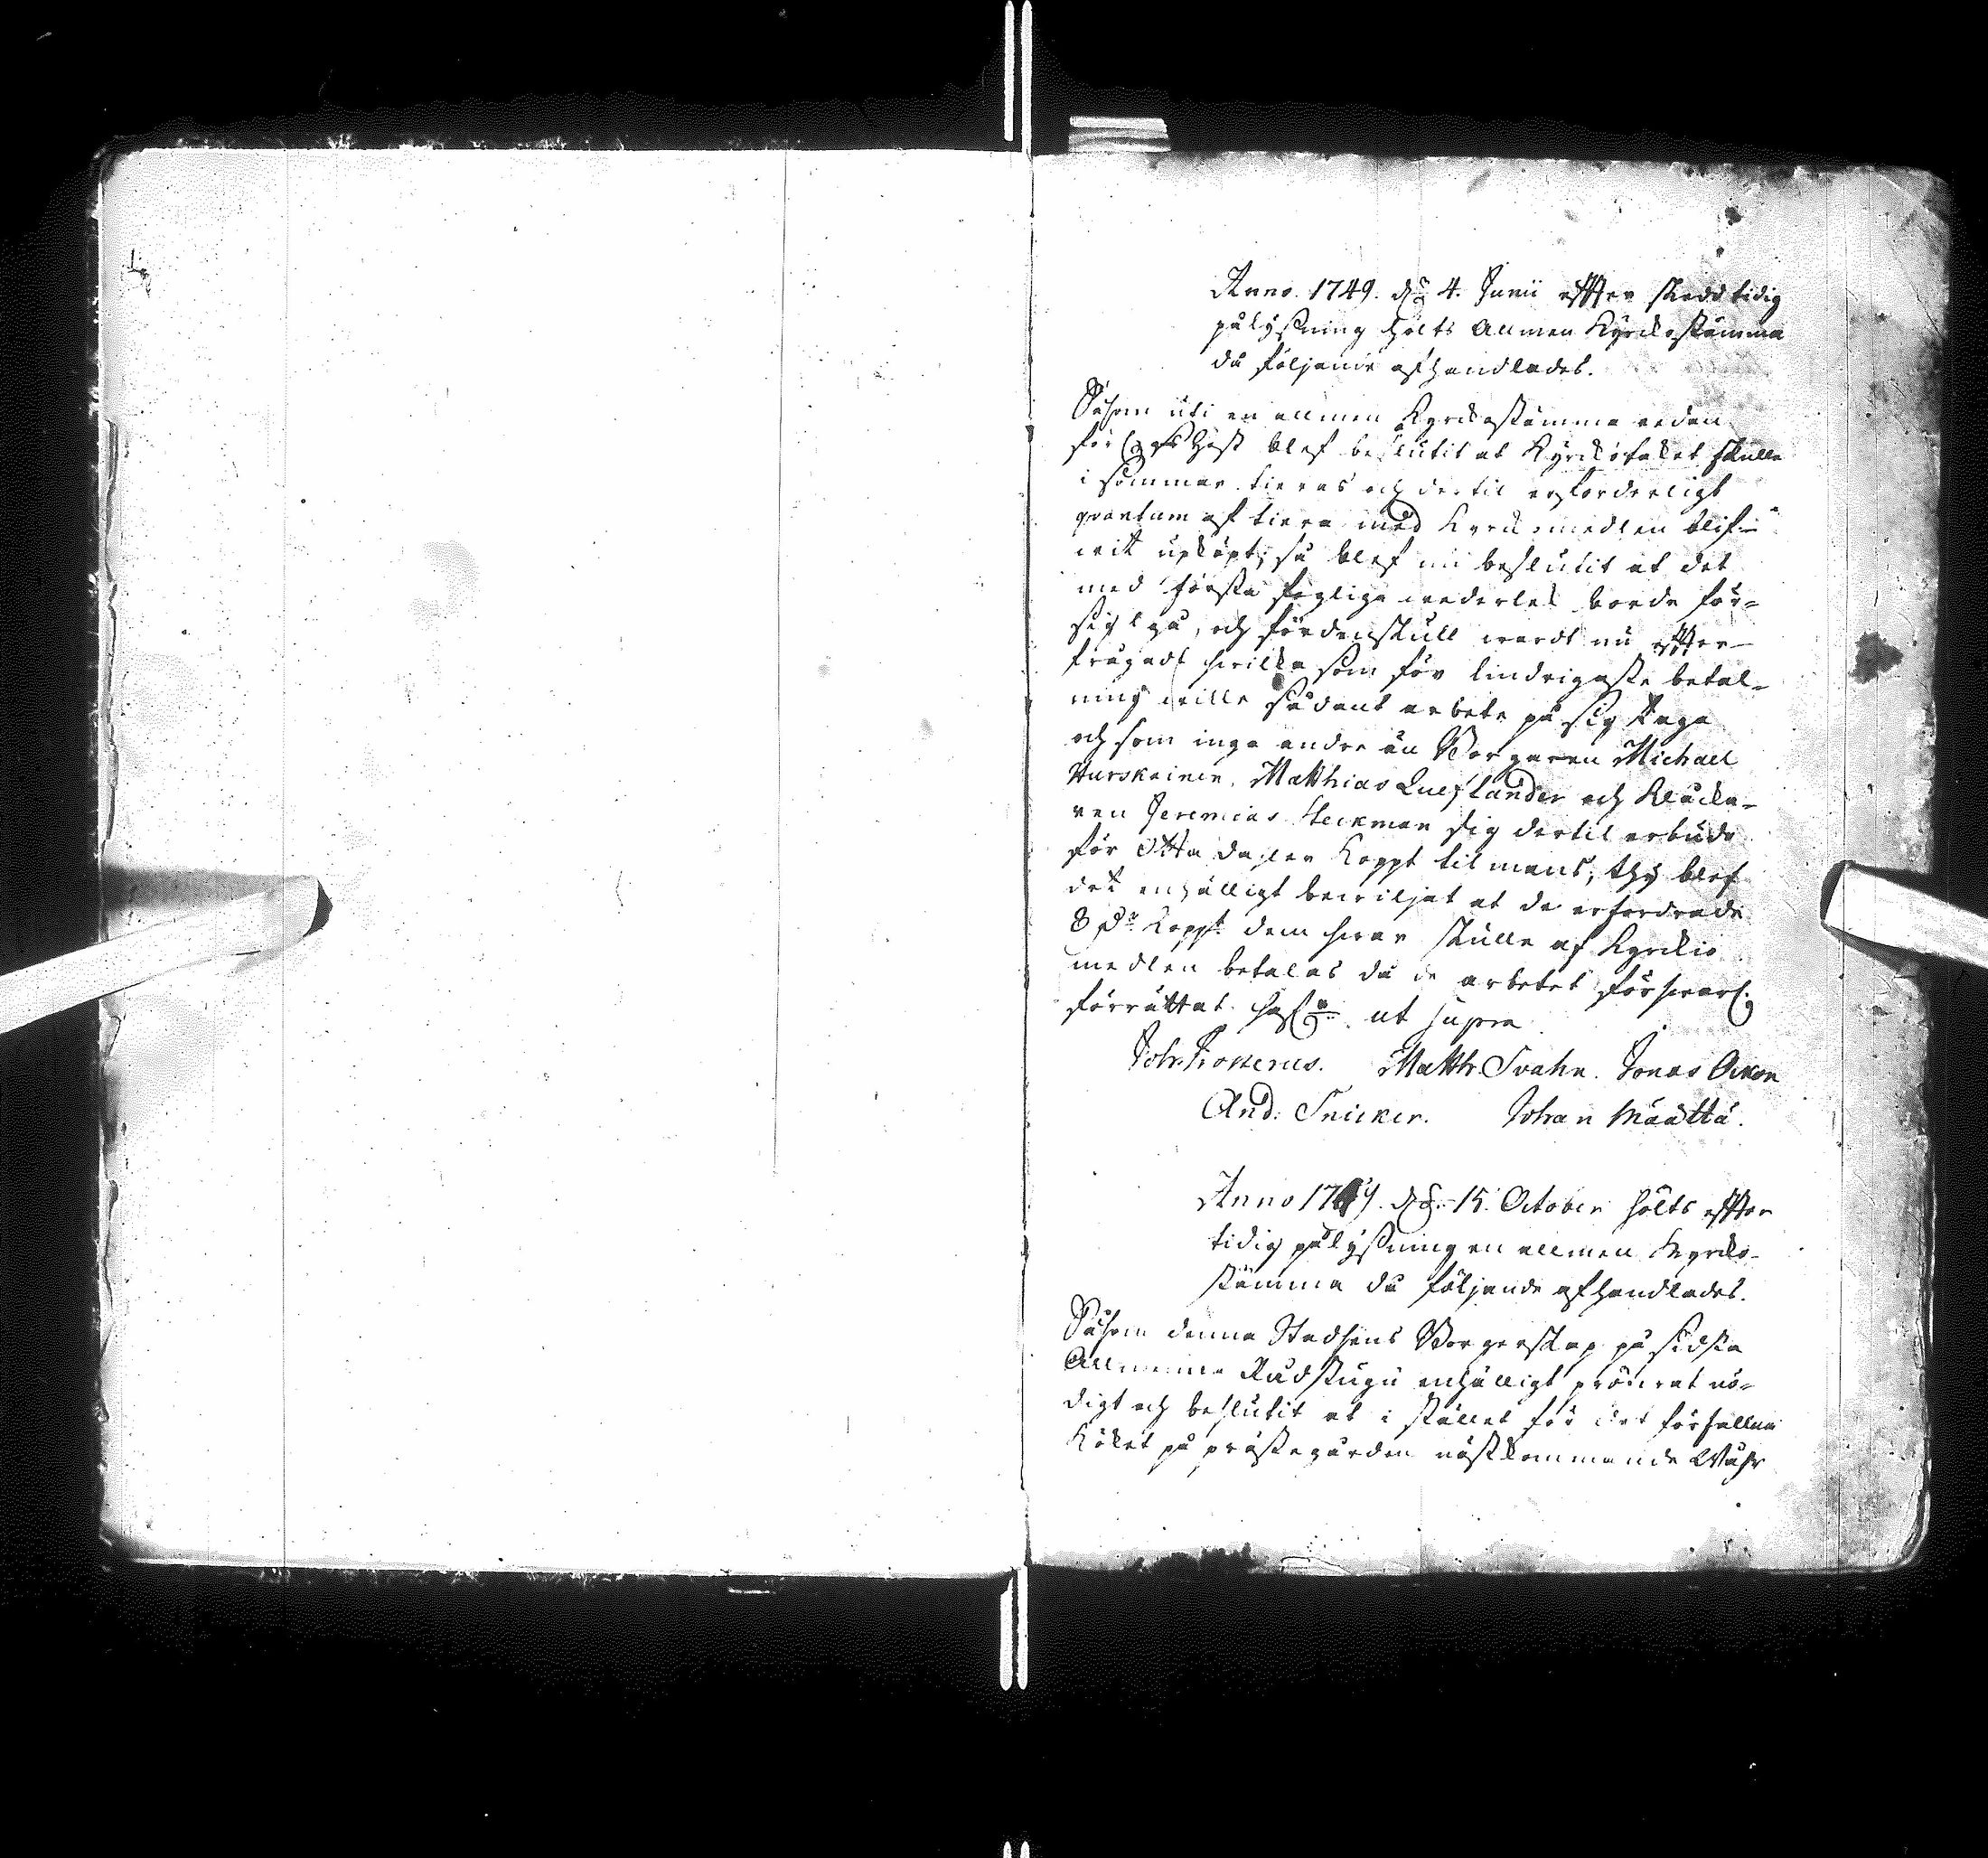 Anno. 1749. d. 4. Junii effter skedd tidig
pålysning hölts Allmen Kyrckostämma
då följande afhandlades.
Såsom uti en allmen Kyrckostämma redan
förl. höst blef beslutit at Kyrckotaket skulle
i sommar tieras och dertil erforderligt
quantum af tiera med Kyrckomedlen blif-
wit upköpt; så blef nu beslutit at det
med första foglige wederlek borde för-
sig gå, och fördenskull wardt nu effter-
frågadt hwilka som för lindrigaste betal-
ning wille sådant arbete på sig taga
och som inga andre än Borgaren Michael
Hurskainen, Matthias Lucflander och Klocka-
ren Jeremias Heckman sig dertil erbudo
för Otta daler Koppt til mans, thy blef
det enhälligt bewiljat at de erfordrade
8 Dr Koppt dem hwar skulle af Kyrckio
medlen betalas då de arbetet förswarl:
förrättat ut supra
Joh. Frosterus. Matth. Svahn. Jonas
And. Snicker. Johan Määttä.
Anno 1749. d. 15. October hölts effter
tidig pålysning en allmen Kyrcko-
stämma då följande afhandlades.
Såsom denna Stadsens Borgerskap på sidsta
Allmenna Rådstugu enhälligt pröfwat nö-
digt och beslutit at i stället för det förfallna
Köket på prästegården nästkommande Wåhr